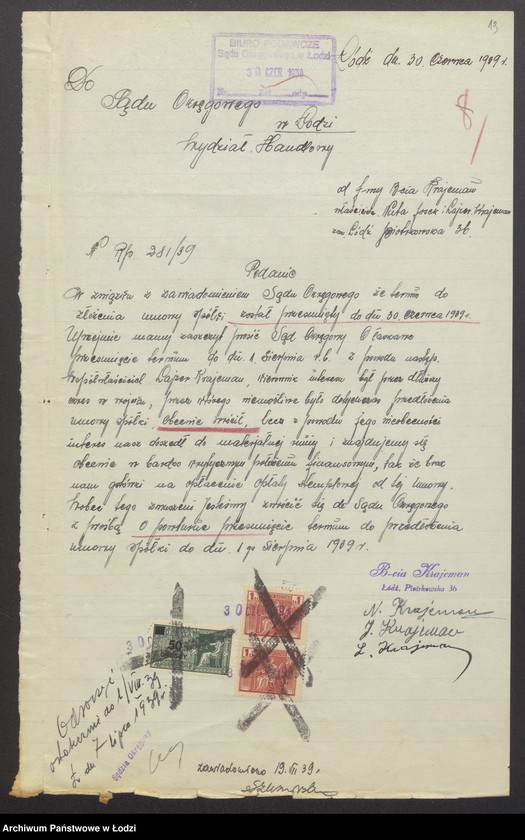 13
BIURO PODAWCZE
Sądu Okręgowego w Łodzi
30 CZER 1939
Łódź dn. 30. Czerwca 1939 r.
8
Do
Sądu Okręgowego
w Łodzi
Wydział Handlowy
od f-my B-cia Krajeman
Krajeman
zam. Łódź Piotrkowska 36.
Rp. 281/39
Podanie
W związku z zawiadomieniem Sądu Okręgowego że termin do
złożenia umowy spółki został przesunięty do dn. 30. Czerwca 1939 r.
Uprzejmie mamy zaszczyt prosić Sąd Okręgowy O łaskawe
przesunięcie terminu do dn. 1 Sierpnia r.b. z powodu następ.
Współwłaściciel Lajzer Krajeman, kierownik interesu był przez dłuższy
czas w wojsku, przez niemożliwe było dotychczas przedłożenia
umowy spółki. Obecnie wrócił, lecz z powodu jego nieobecności
interes nasz doszedł do materjalnej ruiny i znajdujemy się
obecnie w bardzo krytycznym położeniu finansowym, tak że brak
nam gotówki na opłacenie opłaty stemplowej od tej umowy.
Wobec tego zmuszeni jesteśmy zwrócić się do Sądu Okręgowego
z prośbą O ponowne przesunięcie terminu do przedłożenia
umowy spółki do dn. 1-go Sierpnia 1939 r.
B-cia Krajeman
Łódź, Piotrkowska 36
N. Krajeman
J. Krajeman
L. Krajeman
30 CZE 1939
50
1
1
Odroczyć
ostatecznie do 1/VIII.39.
Ł dn 7 Lipca 1939 r.
Sędzia Okręgowy
zawiadomiono 19.VII 39.
Archiwum Państwowe w Łodzi